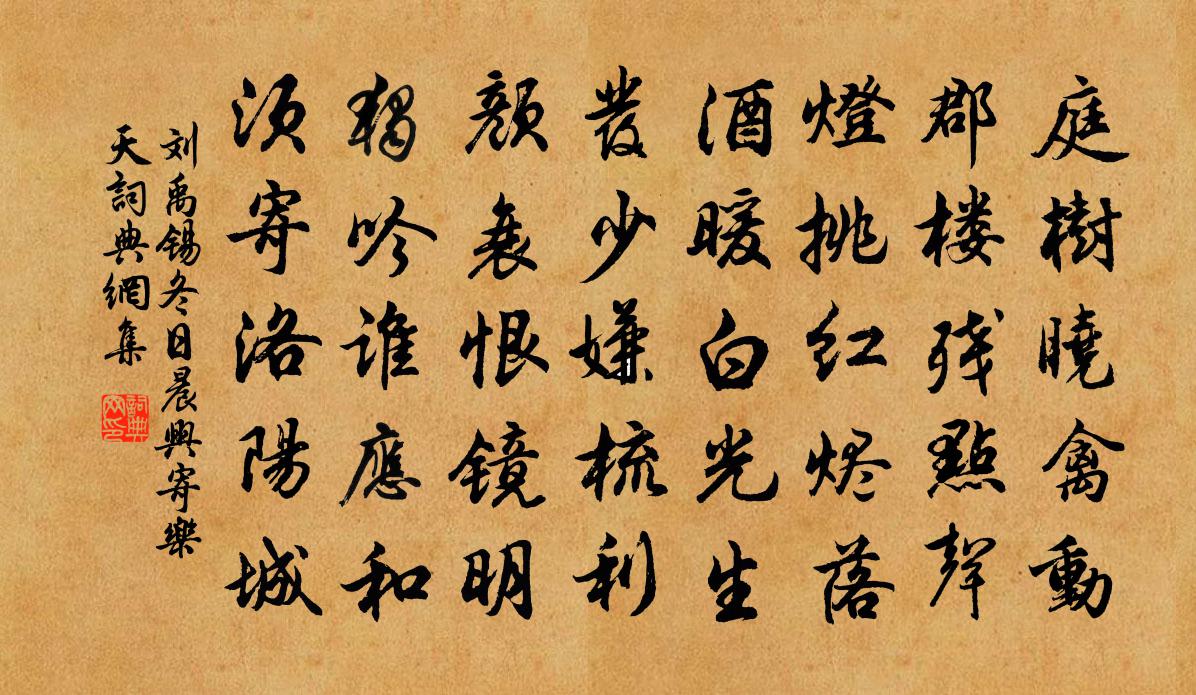 庭樹曉禽動
郡楼残點聲
燈挑红烬落
酒暖白光生
發少嫌梳利
颜衰恨镜明
獨吟誰應和
須寄洛陽城
刘禹锡冬日晨興寄樂
天詞典網集
詞典网印